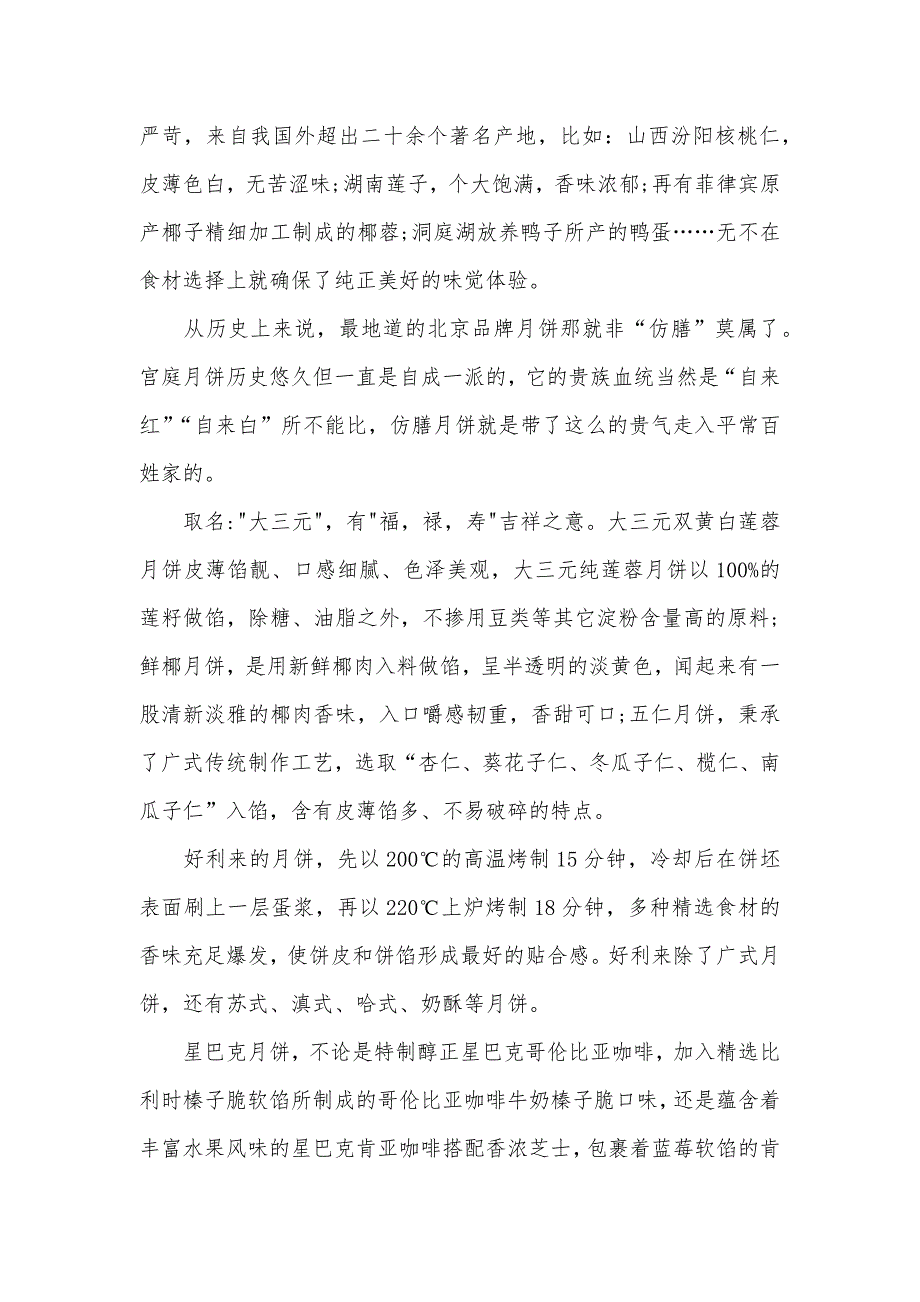 严苛，来自我国外超出二十余个著名产地，比如：山西汾阳核桃仁，
皮薄色白，无苦涩味;湖南莲子，个大饱满，香味浓郁;再有菲律宾原
产椰子精细加工制成的椰蓉;洞庭湖放养鸭子所产的鸭蛋……无不在
食材选择上就确保了纯正美好的味觉体验。
从历史上来说，最地道的北京品牌月饼那就非“仿膳”莫属了。
宫庭月饼历史悠久但一直是自成一派的，它的贵族血统当然是“自来
红”“自来白”所不能比，仿膳月饼就是带了这么的贵气走入平常百
姓家的。
取名:"大三元"，有"福，禄，寿"吉祥之意。大三元双黄白莲蓉
月饼皮薄馅靓、口感细腻、色泽美观，大三元纯莲蓉月饼以100%的
莲籽做馅，除糖、油脂之外，不掺用豆类等其它淀粉含量高的原料;
鲜椰月饼，是用新鲜椰肉入料做馅，呈半透明的淡黄色，闻起来有一
股清新淡雅的椰肉香味，入口嚼感韧重，香甜可口;五仁月饼，秉承
了广式传统制作工艺，选取“杏仁、葵花子仁、冬瓜子仁、榄仁、南
瓜子仁”入馅，含有皮薄馅多、不易破碎的特点。
好利来的月饼，先以200℃的高温烤制15分钟，冷却后在饼坯
表面刷上一层蛋浆，再以220℃上炉烤制18分钟，多种精选食材的
香味充足爆发，使饼皮和饼馅形成最好的贴合感。好利来除了广式月
饼，还有苏式、滇式、哈式、奶酥等月饼。
星巴克月饼，不论是特制醇正星巴克哥伦比亚咖啡，加入精选比
利时榛子脆软馅所制成的哥伦比亚咖啡牛奶榛子脆口味，还是蕴含着
丰富水果风味的星巴克肯亚咖啡搭配香浓芝士，包裹着蓝莓软馅的肯